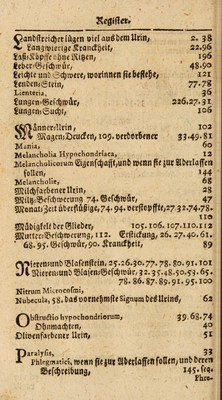 Register.
Landstreicher lügen viel aus dem Urin, 2. 38
Langwierige Kranckheit, 22.96
Last-Köpffe ohne Nitzen, 196
Leber-Geschwür, 48.90
Leichte und Schwere, worinnen sie bestehe, 121
Lenden-Stein, 77.78
Lienteria, 36
Lungen-Geschwür, 226.27.31
Lungen-Sucht, 106
Männer-Urin, 102
Magen-Drucken, 109. verdorbener 33.49.81
Mania, 60
Melancholia Hypochondriaca, 12
Melancholicorum Eigenschafft, und wenn sie zur Aderlassen
sollen, 144
Melancholie, 68
Milchfarbener Urin, 28
Miltz-Beschwerung 74. Geschwür, 47
Monat-Zeit überflüßige, 74. 94. verstopffte, 27.32.74.78.
110
Müdigkeit der Glieder, 105.106.107.110.112
Mutter-Beschwerung, 112. Erstickung, 26. 27.40.61.
68. 95. Geschwür, 90. Kranckheit, 89
Nieren und Blasenstein, 25.26.30.77.78.80.91.101
Nieren und Blasen-Geschwür, 32.35.48.50.53.65.
78.86.87.89.91.95.100
Nitrum Microcosmi,
Nubecula, 58. das vornehmste Signum des Urins, 62
Obstructio hypochondriorum, 39.68.74
Ohnmachten, 40
Olivenfarbener Urin, 51
Paralysis, 33
Phlegmatici, wenn sie zur Aderlassen sollen, und deren
Beschreibung, 145. seq.
Phre-